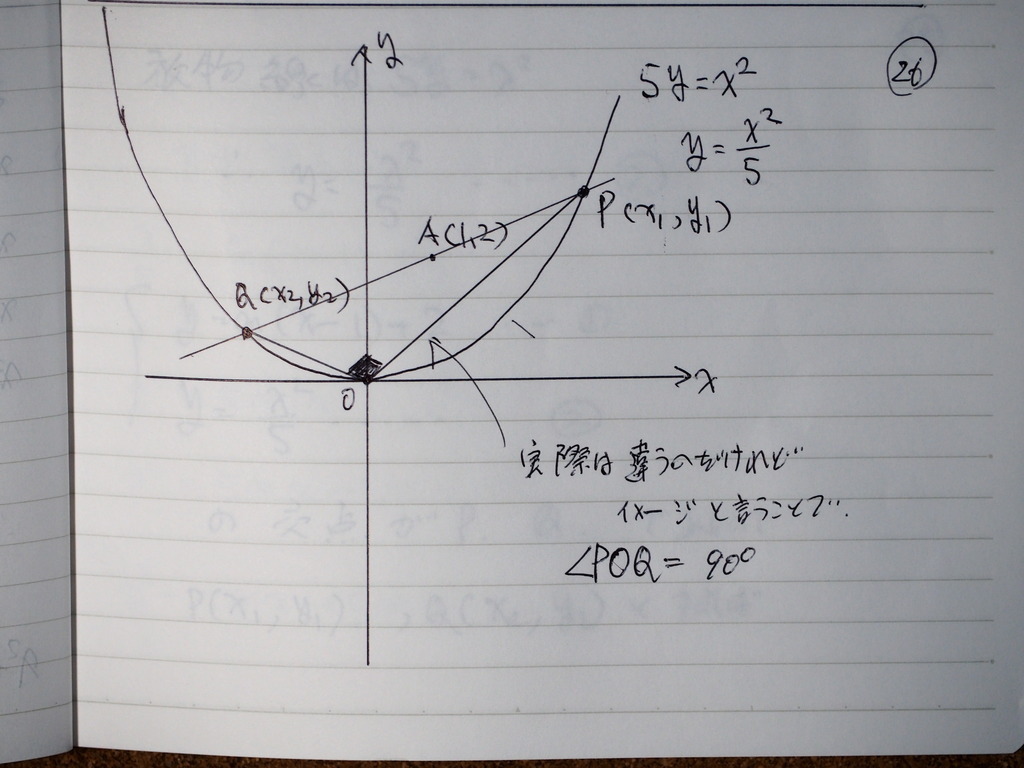 y
26
5y = x²
y = x²/5
P(x₁, y₁)
A(1,2)
Q(x₂, y₂)
O
x
実際は違うのだけれど
イメージと言うことで.
∠POQ = 90°